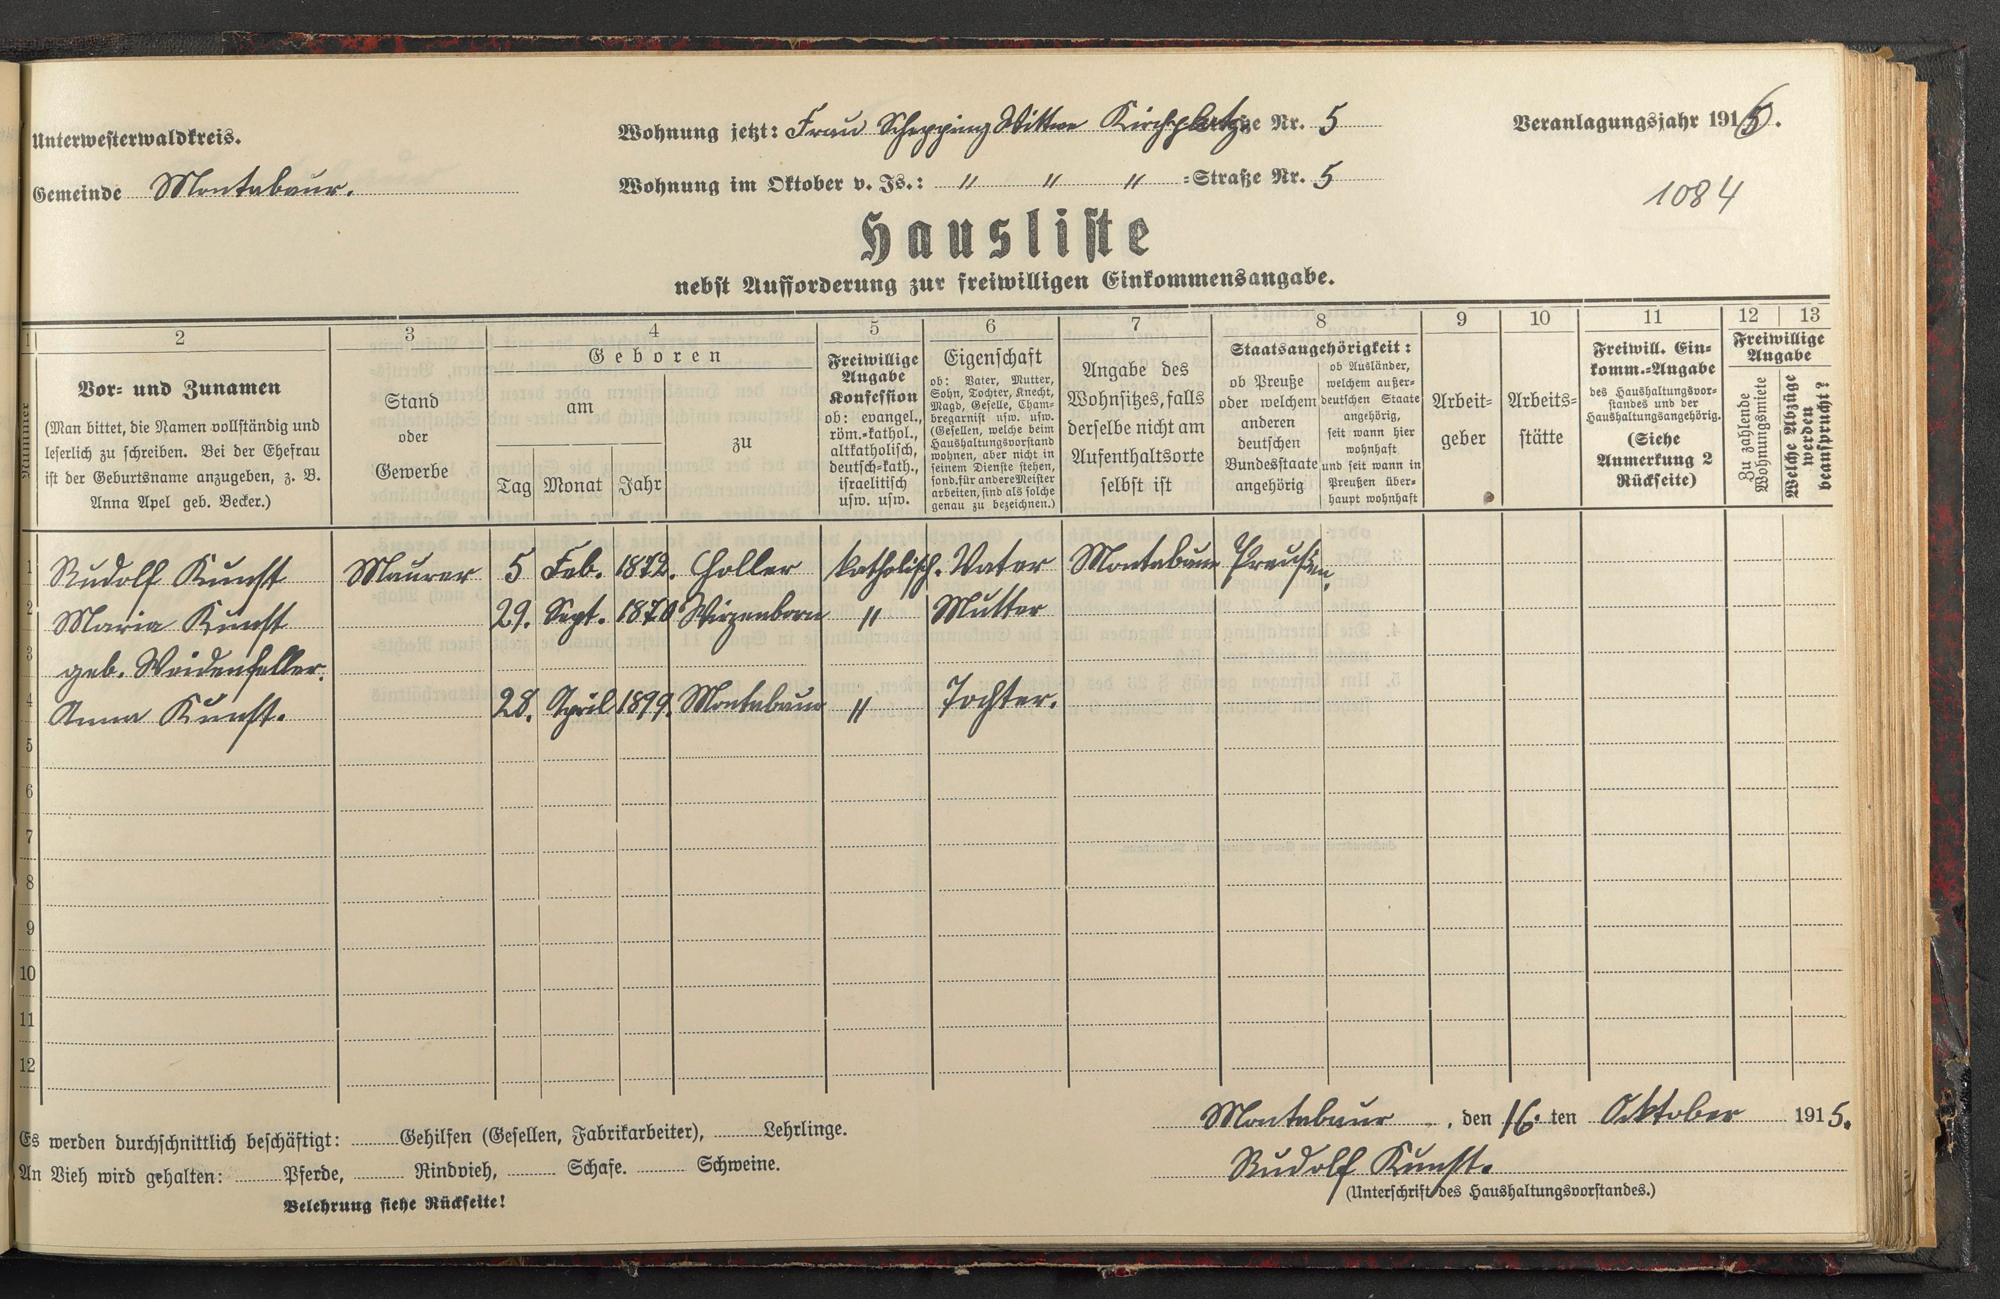 Unterwesterwaldkreis.
Gemeinde Montabaur.
Wohnung jetzt: Frau Schepping Witwe Kirchplatz Nr. 5
Wohnung im Oktober v. Js.: " " " =Straße Nr. 5
Veranlagungsjahr 1916.
1084
Hausliste
nebst Aufforderung zur freiwilligen Einkommensangabe.
1 2 3 4 5 6 7 8 9 10 11 12 13
Nummer
Vor- und Zunamen
(Man bittet, die Namen vollständig und
leserlich zu schreiben. Bei der Ehefrau
ist der Geburtsname anzugeben, z. B.
Anna Apel geb. Becker.)
Stand
oder
Gewerbe
Geboren
am
Tag Monat Jahr
zu
Freiwillige
Angabe
Konfession
ob: evangel.,
röm.=kathol.,
altkatholisch,
deutsch=kath.,
israelitisch
usw. usw.
Eigenschaft
ob: Vater, Mutter,
Sohn, Tochter, Knecht,
Magd, Geselle, Cham-
bregarnist usw. usw.
(Gesellen, welche beim
Haushaltungsvorstand
wohnen, aber nicht in
seinem Dienste stehen,
sond. für andere Meister
arbeiten, sind als solche
genau zu bezeichnen.)
Angabe des
Wohnsitzes, falls
derselbe nicht am
Aufenthaltsorte
selbst ist
Staatsangehörigkeit:
ob Preuße
oder welchem
anderen
deutschen
Bundesstaate
angehörig
ob Ausländer,
welchem außer-
deutschen Staate
angehörig,
seit wann hier
wohnhaft
und seit wann in
Preußen über-
haupt wohnhaft
Arbeit=
geber
Arbeits=
stätte
Freiwill. Ein-
komm.=Angabe
des Haushaltungsvor-
standes und der
Haushaltungsangehörig.
(Siehe
Anmerkung 2
Rückseite)
Freiwillige
Angabe
Zu zahlende
Wohnungsmiete
Welche Abzüge
werden
beansprucht?
1 Rudolf Kunst Maurer 5 Feb. 1872. Holler katholisch. Vater Montabaur Preußen.
2 Maria Kunst 29. Sept. 1870 Wirzenborn " Mutter
3 geb. Weidenfeller.
4 Anna Kunst. 28. April 1899. Montabaur " Tochter.
5
6
7
8
9
10
11
12
Es werden durchschnittlich beschäftigt: Gehilfen (Gesellen, Fabrikarbeiter), Lehrlinge.
An Vieh wird gehalten: Pferde, Rindvieh, Schafe. Schweine.
Belehrung siehe Rückseite!
Montabaur, den 16. ten Oktober 1915.
Rudolf Kunst.
(Unterschrift des Haushaltungsvorstandes.)